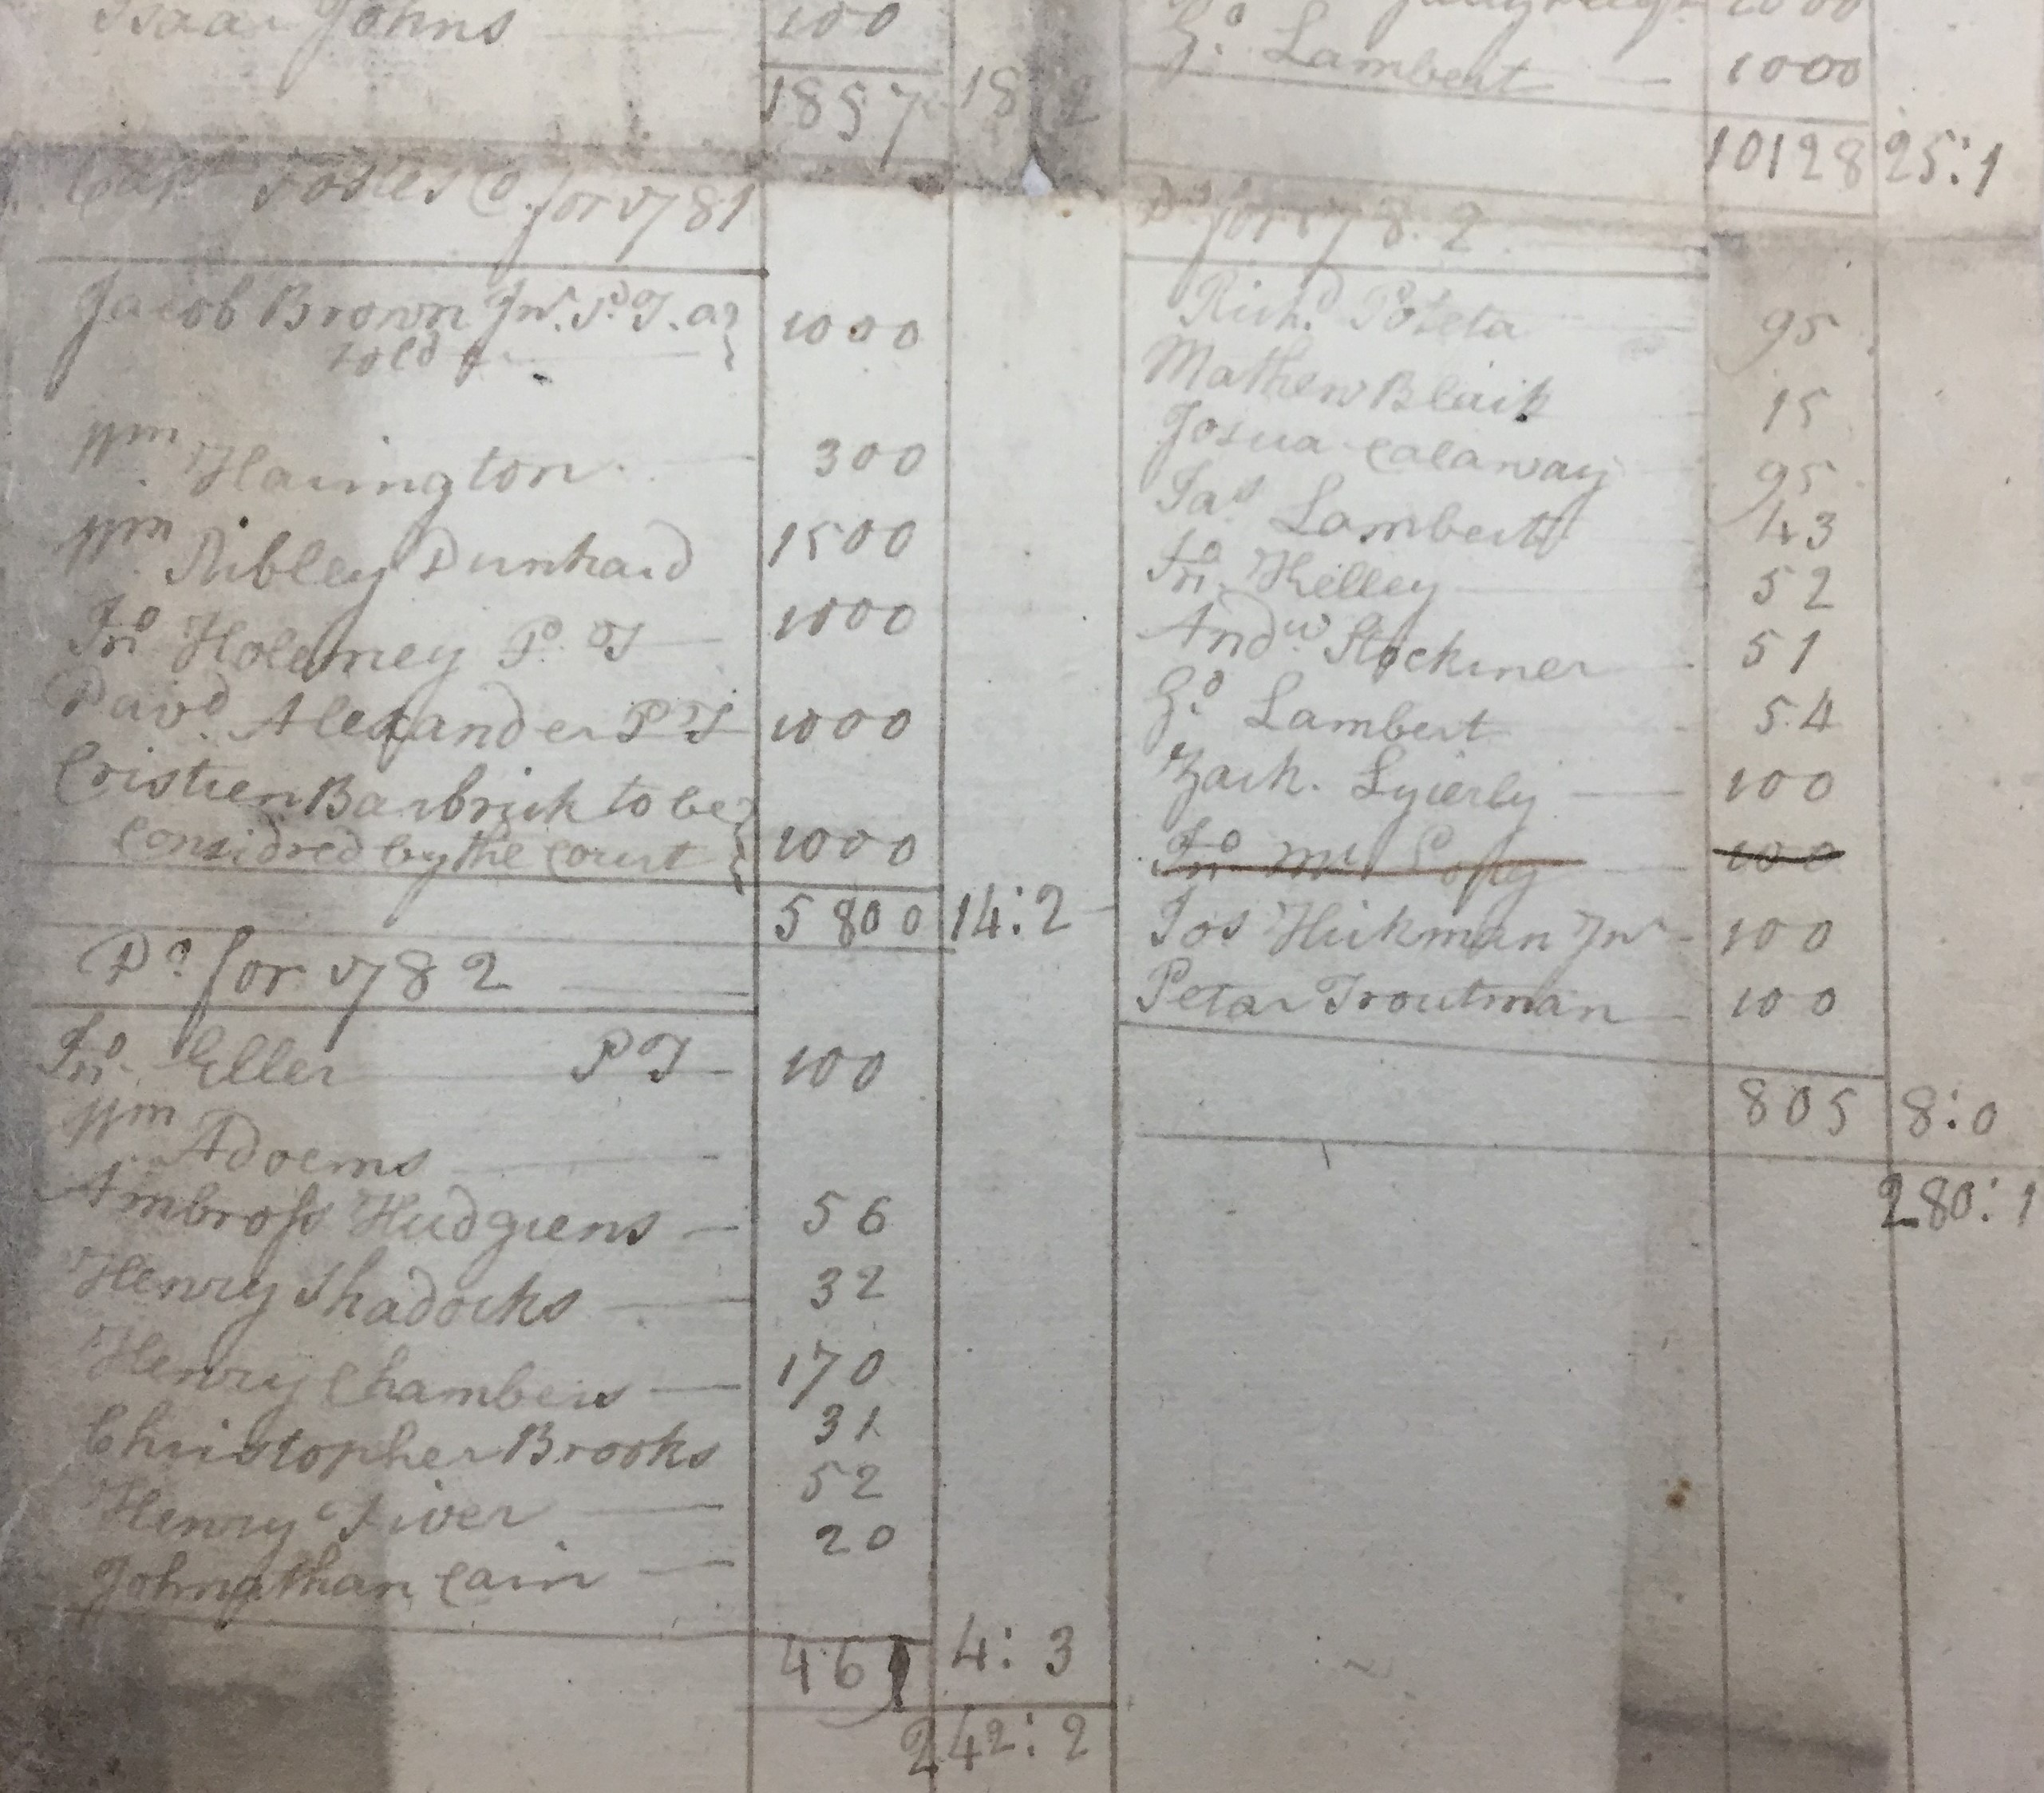 Isaac Johns 100
1857 18 2
Capt. Co. for 1781
Jacob Brown Jnr. P. T. a 1000
told
Wm. Harington 300
Wm. Sibley Dunhard 1500
Jno. Holemey P. T 1000
Davd. Alexander P T 1000
Cristien Barbrick to be
Considred by the Court 1000
5800 14:2
Do. for 1782
Jno. Eller P T 100
Wm. Adoems
Ambross Hudgiens 56
Henry Shadocks 32
Henry Chambers 170
Christopher Brooks 31
Henry Siver 52
Johnathan Cain 20
461 4:3
242:2
1000
Go. Lambert 1000
10128 25:1
Do. for 1782
Richd. Poteta 95
Mathew Blaik 15
Josua Calaway 95
Jas Lambert 43
Jno. Kelley 52
Andw. Stockiner 51
Go. Lambert 54
Zach. Lyierly 100
Jno. 100
Jos Hickman Jnr 100
Petar Troutman 100
805 8:0
280:1